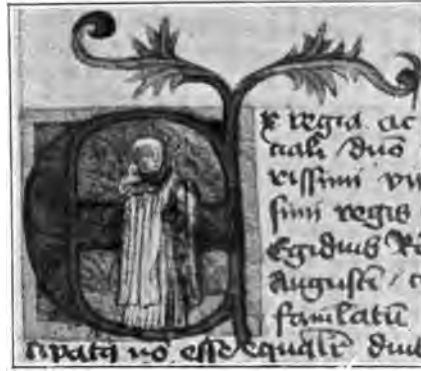 Ex regia ac
ciali / dn̄o
rissimi vi
simi regis
Egidius Ro
Augusti / c
famlatū
cipatꝰ nō esse equalit̄ diut